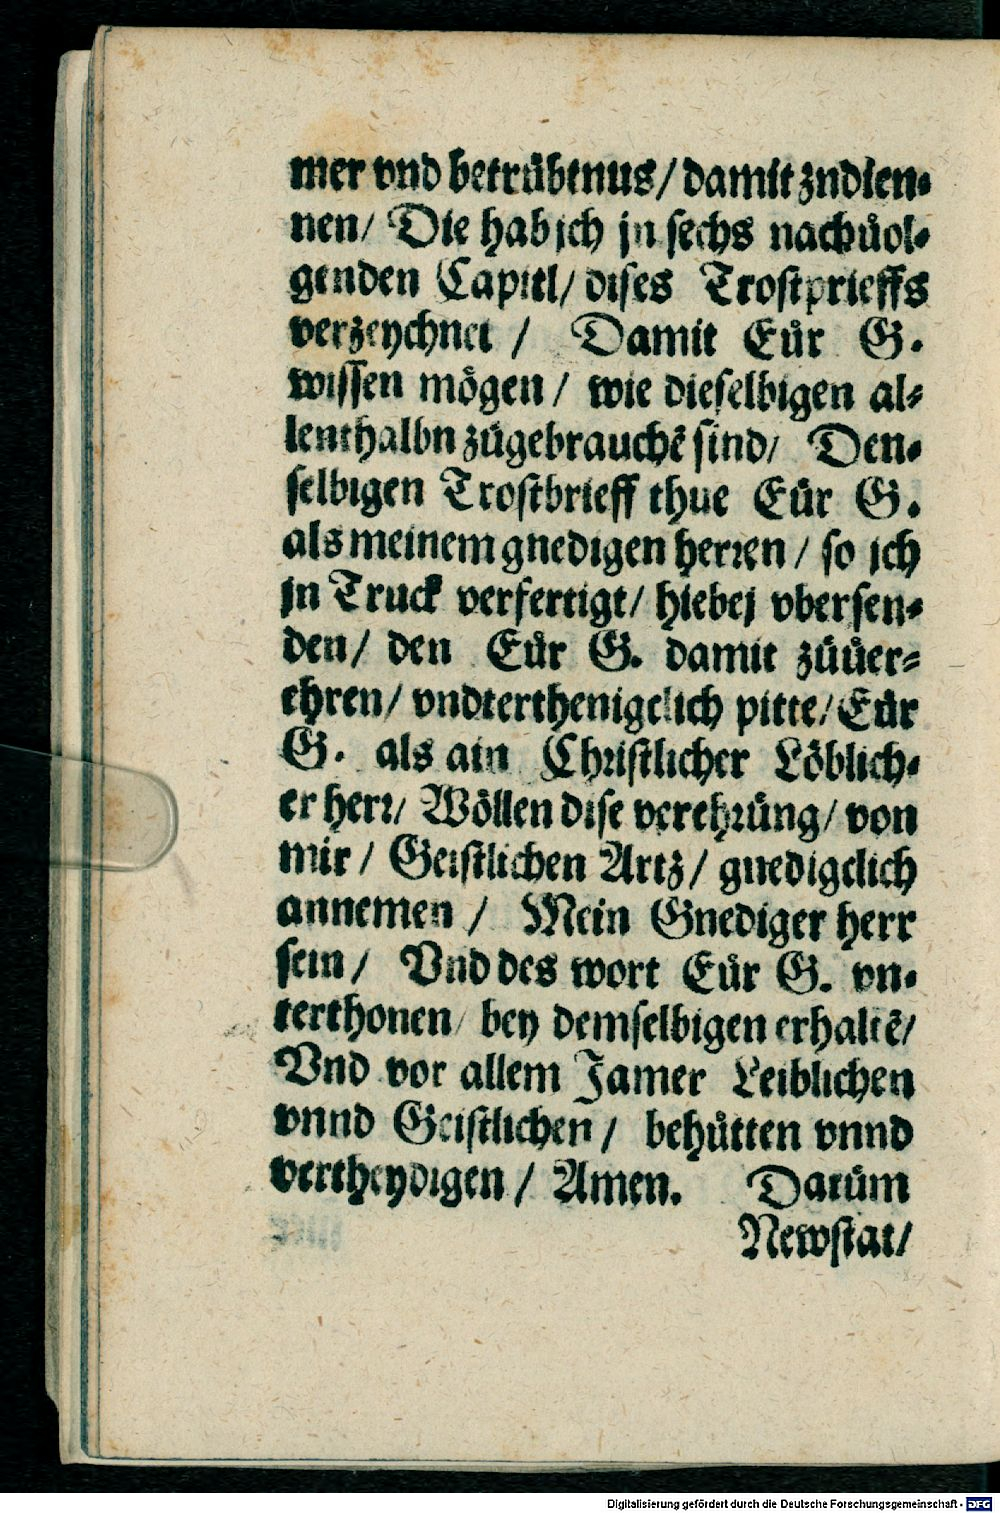 mer vnd betrübtnus/ damit zndien⸗
nen/ Die hab jch jn sechs nachuͤol⸗
genden Capitl/ dises Trostprieffs
verzeychnet / Damit Eür G.
wissen mögen/ wie dieselbigen al⸗
lenthalbn zügebrauchẽ sind/ Den⸗
selbigen Trostbrieff thue Eür G.
als meinem gnedigen herren/ so jch
jn Truck verfertigt/ hiebej vbersen⸗
den/ den Eür G. damit züüer⸗
ehren/ vndterthenigelich pitte/ Eür
G. als ain Christlicher Löblich⸗
er herr/ Wöllen dise verehrüng/ von
mir/ Geistlichen Artz/ gnedigelich
annemen / Mein Gnediger herr
sein/ Vnd des wort Eür G. vn⸗
terthonen/ bey demselbigen erhaltẽ/
Vnd vor allem Jamer Leiblichen
vnnd Geistlichen/ behütten vnnd
vertheydigen/ Amen. Datüm
Newstat/
Digitalisierung gefördert durch die Deutsche Forschungsgemeinschaft - DFG